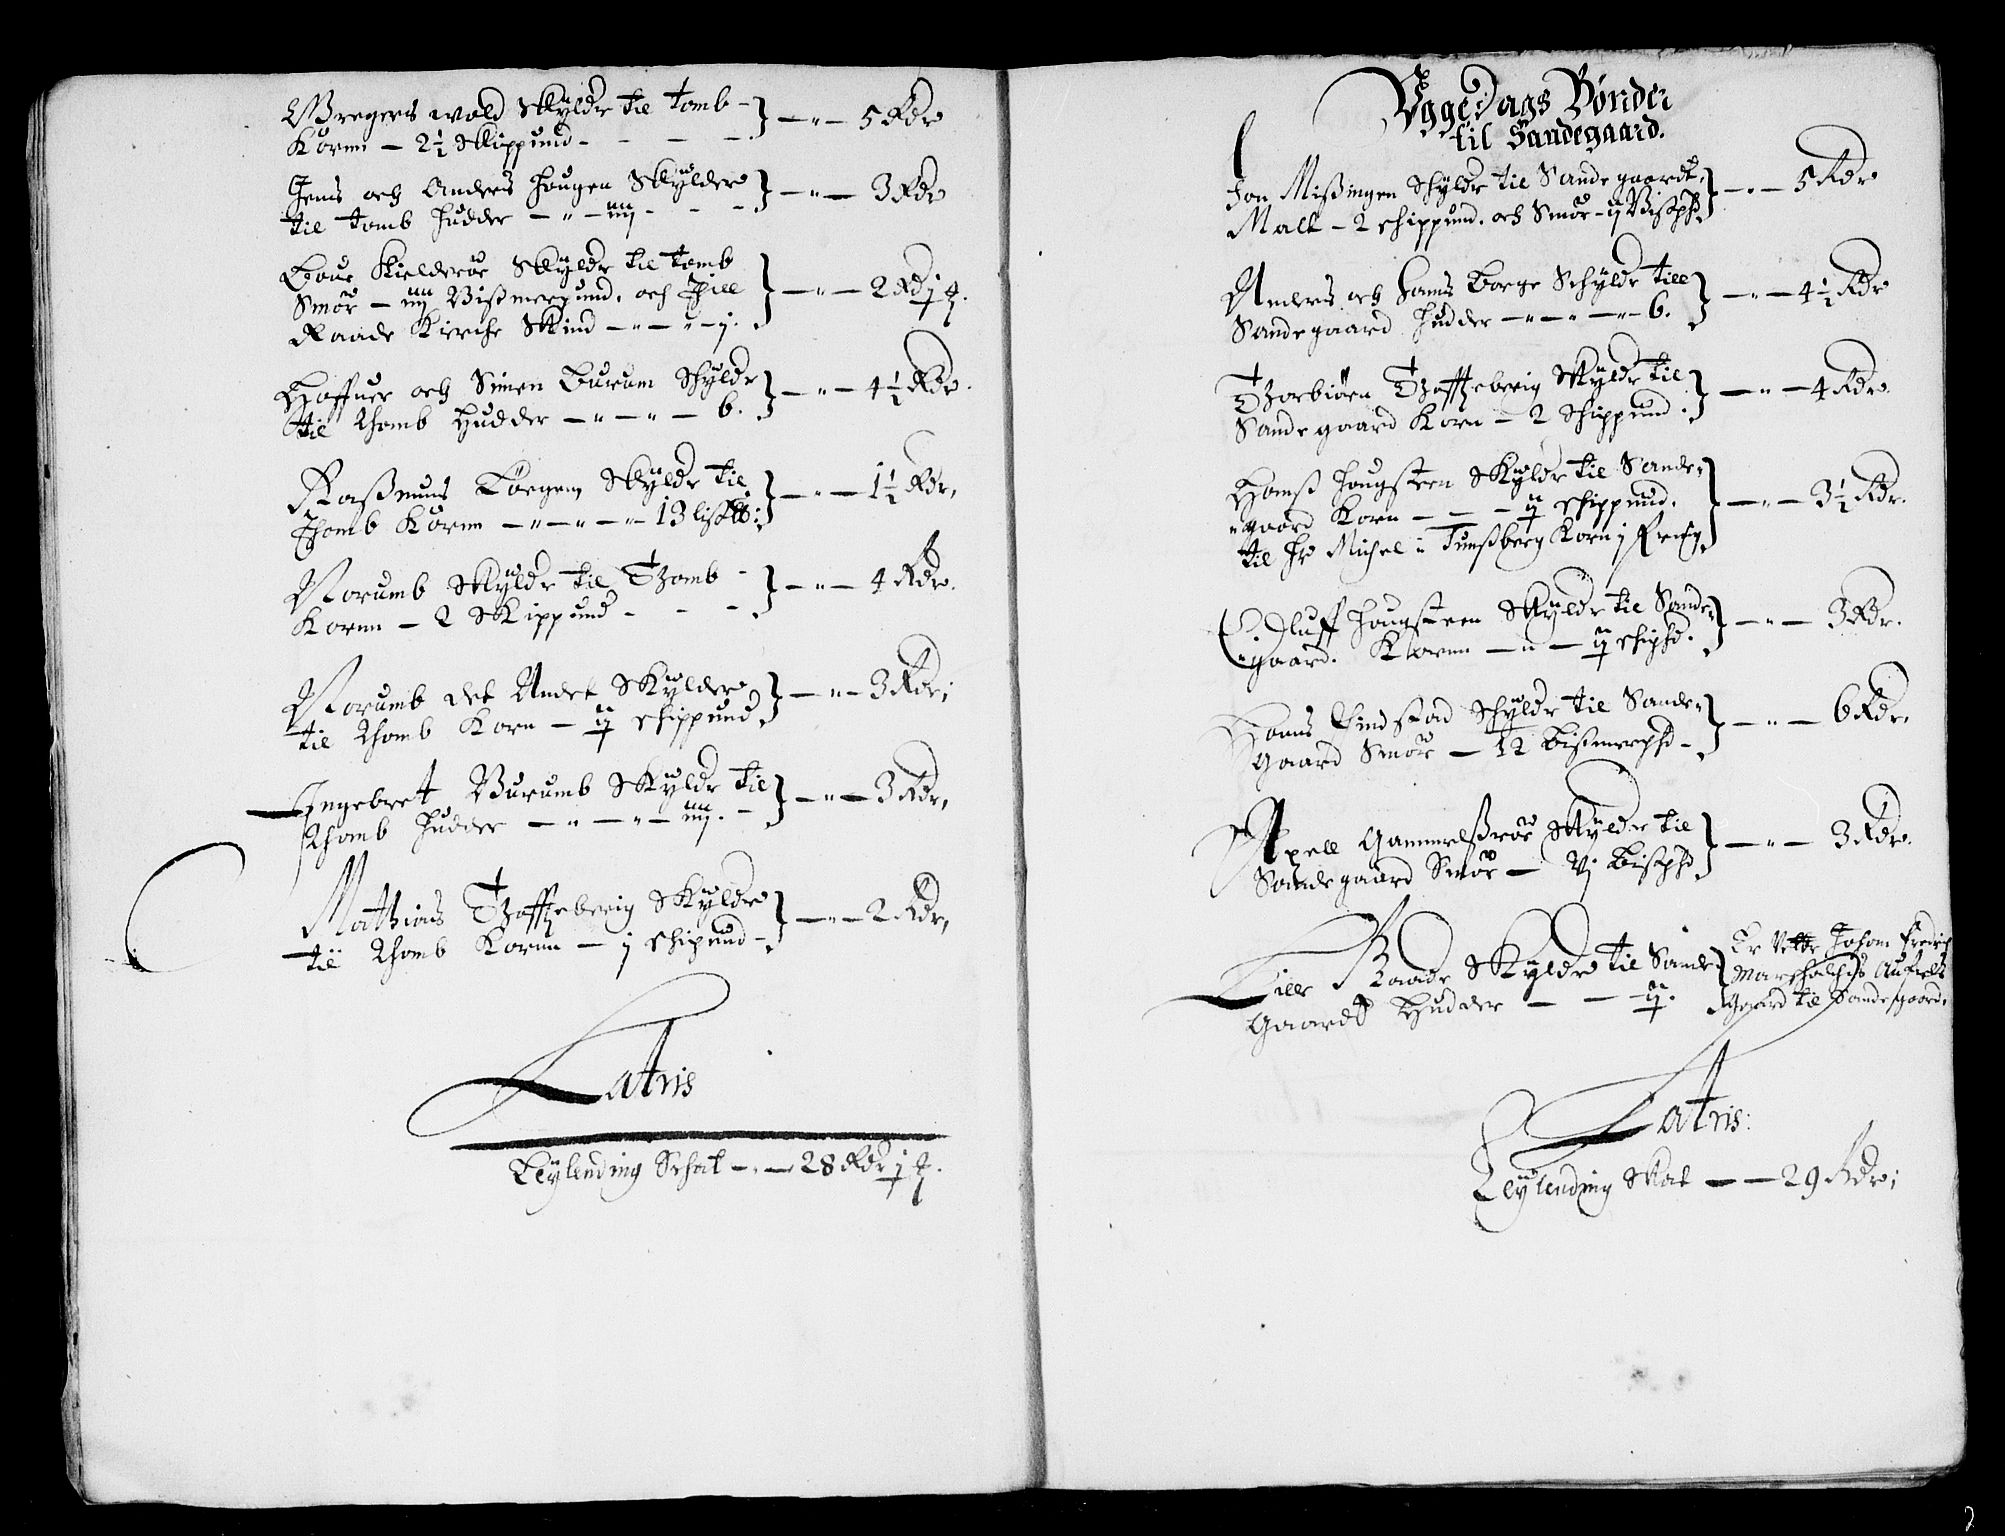 Gregers wold Skylder til Tomb -
Korn - 2½ Skippund - - - - 5 Rdr
Jens och Anders Hougen Skylder
til Tomb Hudder - " - iiij - - - " - 3 Rdr
Boue Kielderør Skylder til Tomb
Smør - iiij Bißmerpund. och Till
Raade Kirche Skind - " - " - j. - " - 2 Rd j
Haffuer och Simen Burum Schylder
til Thomb Hudder - " - " - 6. - " - 4½ Rdr.
Raßmuus Børgen, Skylder til
Thomb Korn - " - " - " 13 lis - " - 1½ Rdr,
Norumb Skylder til Thomb -
Korn - 2 Skippund - - - - " - 4 Rdr.
Norumb det Andet Skylder
til Thomb Korn - ij Schippund - " - 3 Rdr;
Ingebret Burumb Skylder til
Thomb Hudder - " - " - iiij. - - " - 3 Rdr,
Mathias Thoffteberig Skylder
til Thomb Korn - j Schipund - - " - 2 Rdr,
Latris
Leylending Schat - " - 28 Rdr j
Uggedags Bønder
til Sandegaard.
Jon Mißingen Schylder til Sandegaardt,
Malt - 2 Schippund. och Smør - ij - " - 5 Rdr
Anders och Hans Borge Schylder till
Sandegaard Hudder - " - " - " - 6. - " - 4½ Rdr
Thorbiørn Thoffteberig Skylder til
Sandegaard Korn - 2 Schippund. - " - 4 Rdr.
Hanß Hougsteen Skylder til Sande-
gaard Korn - - - ij Schippund.
til Hr Michel i Tunßberg Korn j - " - 3½ Rdr.
Oluff Hougsteen Skylder til Sande-
gaard. Korn - " - ij Schipd. - " - 3 Rdr.
Hanns Lindstad Schylder til Sande-
gaard Smør - 12 Bißmerpd - - " - 6 Rdr,
Axell Gammelßrør Skylder til
Sandegaard Smør - Vj Bißpd - " - 3 Rdr.
Lille Raade Skylder til Sande
Gaardt Hudder - - - ij.
Er Johan Fredrich
Marschalchs Aufuels
Gaard til Sandegaard.
Latris:
Leylending Skat - - 29 Rdr;